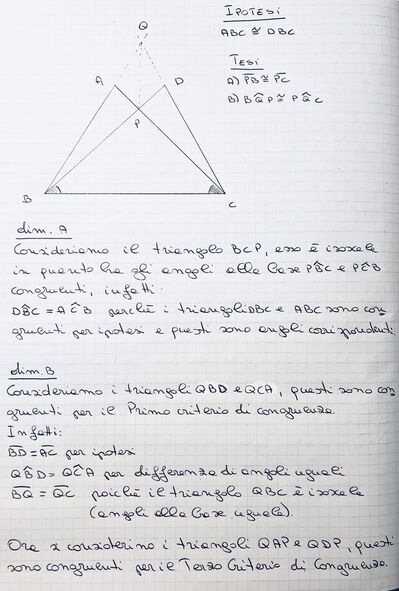 IPOTESI
ABC ≅ DBC
TESI
A) P̅B̅ ≅ P̅C̅
B) BQ̂P ≅ PQ̂C
Q
A
D
P
B
C
dim. A
Consideriamo il triangolo BCP, esso è isoscele
in quanto ha gli angoli alla base PB̂C e PĈB
congruenti, infatti:
DB̂C = AĈB perché i triangoli DBC e ABC sono con
gruenti per ipotesi e questi sono angoli corrispondenti.
dim. B
Consideriamo i triangoli QBD e QCA, questi sono con
gruenti per il Primo criterio di congruenza.
Infatti:
B̅D̅ = A̅C̅ per ipotesi
QB̂D = QĈA per differenza di angoli uguali
B̅Q̅ = Q̅C̅ poiché il triangolo QBC è isoscele
(angoli alla base uguale).
Ora si considerino i triangoli QAP e QDP, questi
sono congruenti per il Terzo Criterio di Congruenza.